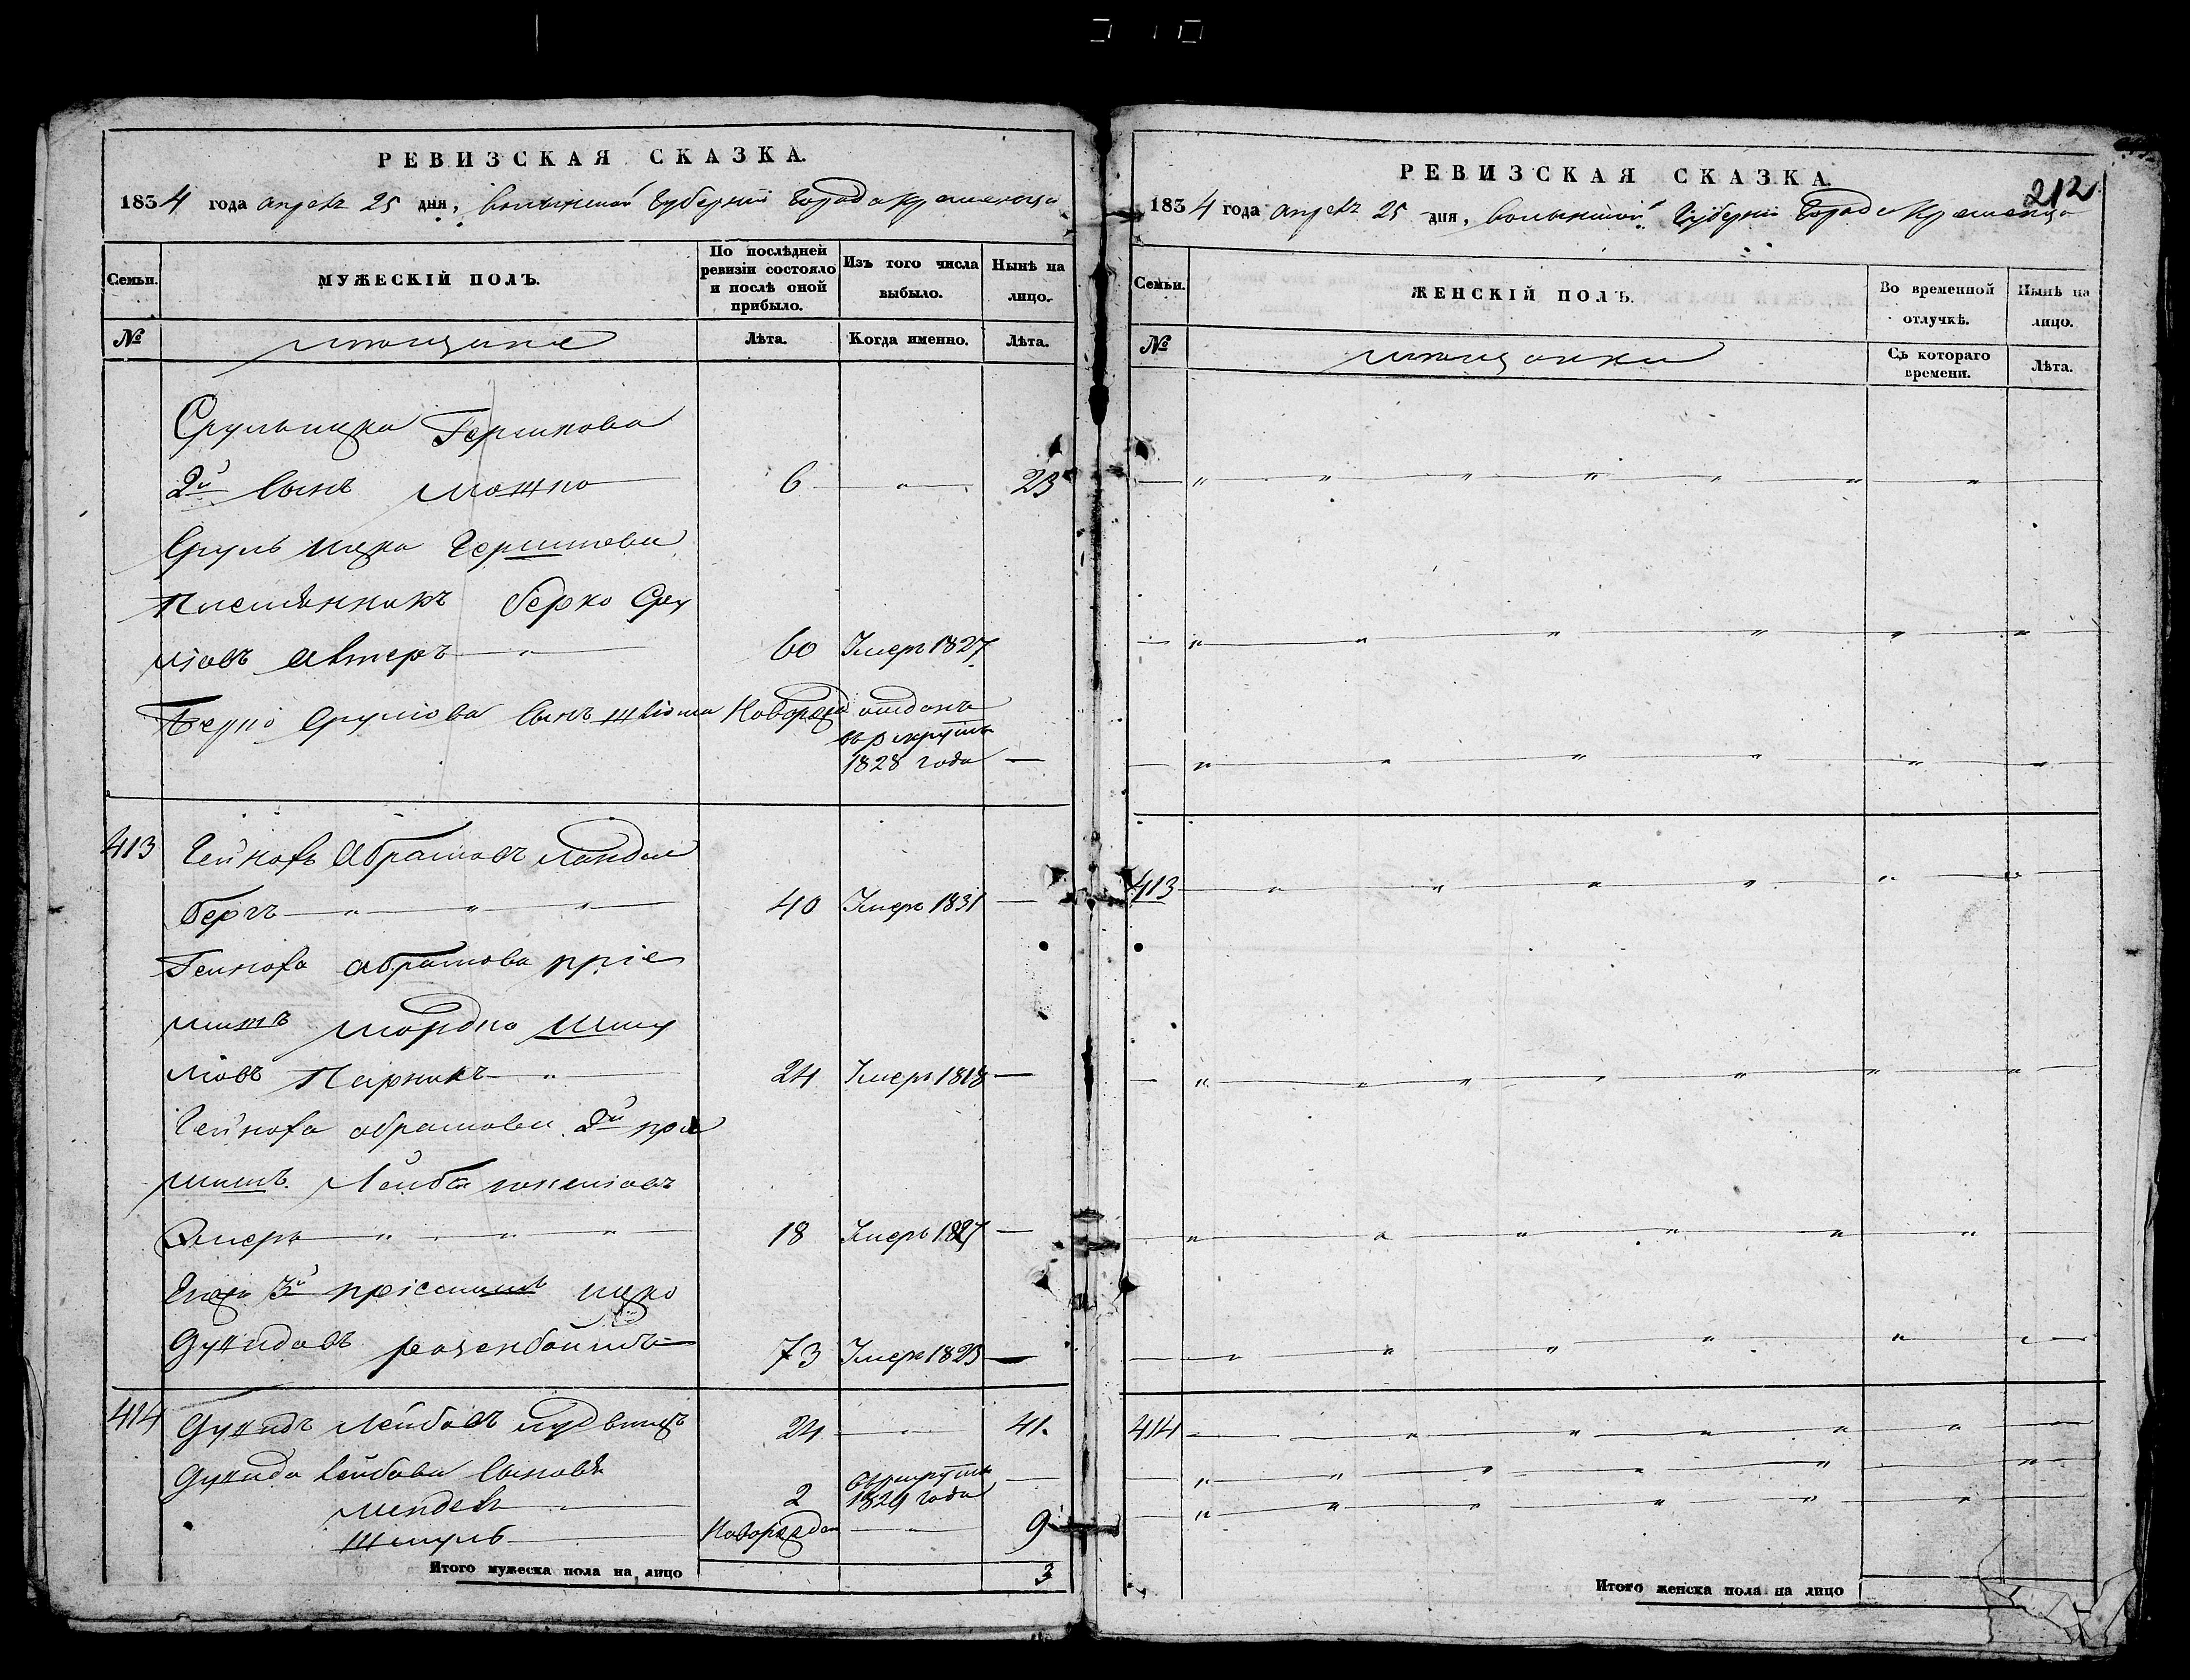 РЕВИЗСКАЯ СКАЗКА.
1834 года апрель 25 дня, волынской Губернии города Кременца
Семьи.
МУЖЕСКІЙ ПОЛЪ.
По послѣдней ревизіи состояло и послѣ оной прибыло.
Изъ того числа выбыло.
Нынѣ на лицо.
№
мещане
Лѣта.
Когда именно.
Лѣта.
Срульицка Гершкова
2й сынъ мошко 6 — " — 23
Сруль ицка Гершкова
племянникъ берко Сру
ліовъ 60 Умеръ 1827
Берка Срулiова сынъ Новорожд отданъ
въ рекруты
1828 года —
413 Гейнохъ Абрамовъ Ландын
бергъ — " — " — " — 40 Умеръ 1831 —
Гейноха абрамова пріе
мышъ мордко Шму
ліовъ — " — 24 Умеръ 1818 —
Гейноха абрамова 2й прие
мышъ Лейба
— " — " — " 18 Умеръ 1827 —
3й пріемышъ ицко
Дувидовъ розенблитъ 73 Умеръ 1823 —
414 Дувидъ Лейбовъ 24 — " — 41.
Дувида Лейбова сыновья
мендель — " — 2 въ рекруты
1829 года —
Шмуль — Новорожден — " — 9
Итого мужеска пола на лицо 3
РЕВИЗСКАЯ СКАЗКА
212
1834 года апрель 25 дня, волынской Губернии города Кременца
Семьи.
ЖЕНСКІЙ ПОЛЪ.
Во временной отлучкѣ.
Нынѣ на лицо.
№
мещанки
Съ котораго времени.
Лѣта.
413
414
Итого женска пола на лицо